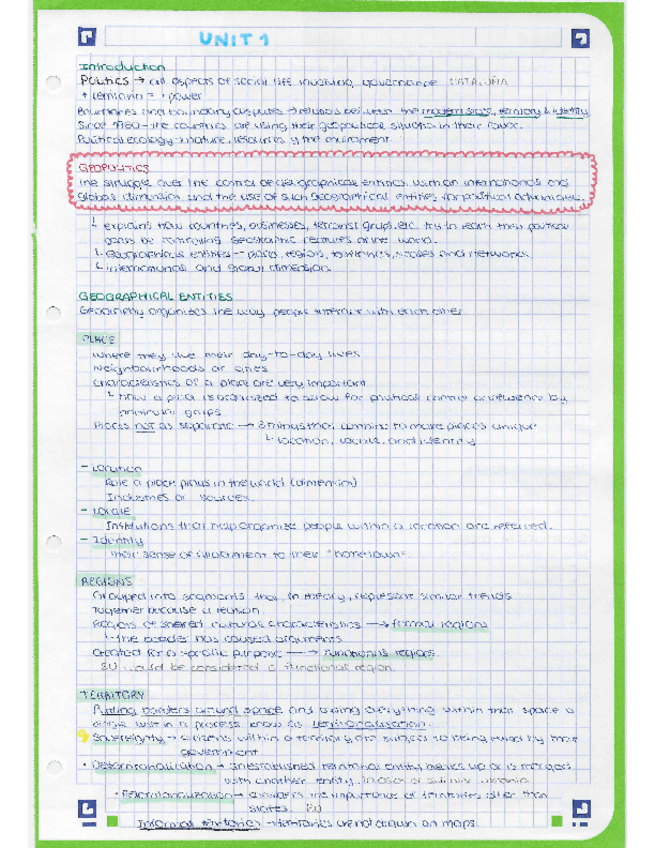 UNIT 1
Introduction
Politics → all aspects of social life involving governance CATALUÑA
+ territorio = + power
Boundaries and boundary disputes → relations between the modern state, territory & identity
Since 1980 - the countries are using their geopolitical situation in their favor.
Political ecology → nature, resources y the enviroment.
GEOPOLITICS
The struggle over the control of geographical entities with an international and
global dimension, and the use of such geographical entities for political advantages.
↳ explains how countries, businesses, terrorist groups, etc. try to reach their political
goals by controlling geographic features of the world.
↳ Geographical entities → place, region, territories, scales and networks
↳ international and global dimension
GEOGRAPHICAL ENTITIES
Geography organises the way people interact with each other
PLACE
Where they live their day-to-day lives
Neighbourhoods or cities
Characteristics of a place are very important
↳ How a place is organized to allow for political control or influence by
particular groups
Places not as separate → 3 things that combine to make places unique
↳ location, locale, and identity
- Location
Role a place plays in the world (dimension)
Industries or sources.
- Locale
Institutions that help organise people within a location are referred.
- Identity
their sense of attachment to their "hometown".
REGIONS
Grouped into segments that, in theory, represent similar trends
Together because a reason.
Regions of shared cultural characteristics → formal regions
↳ the border has caused arguments
Created for a specific purpose → functional regions.
EU could be considered a functional region
TERRITORY
Putting borders around space and using everything within that space a
in a process know as territorialisation.
Sovereignty → citizens within a territory are subject to being ruled by that
government
• Deterritorialization → an established territorial entity breaks up or is merged
with another entity.
• Reterritorialization → the importance of territories other than
states. EU
Informal territories → territories are not drawn on maps.